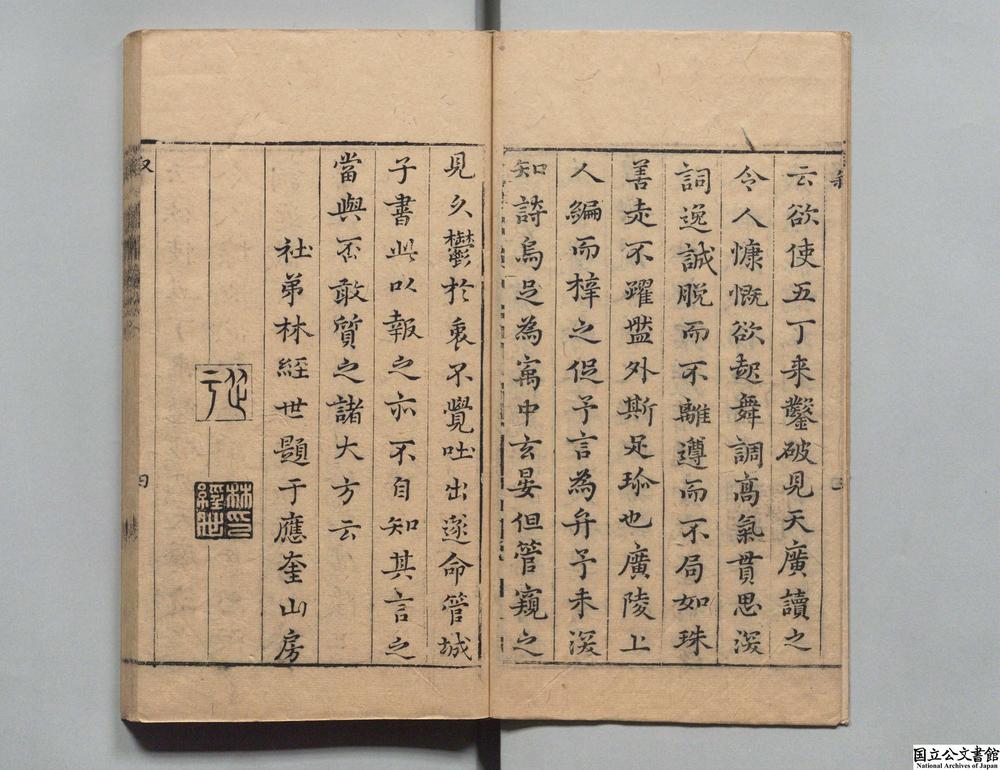 云欲使五丁来鑿破見天廣讀之
令人慷慨欲起舞調高氣貫思深
詞逸誠脫而不離遵而不局如珠
善走不躍盤外斯足珍也廣陵上
人編而梓之促予言為弁予未深
知詩烏足為寓中玄晏但管窺之
見久鬱於衷不覺吐出遂命管城
子書此以報之亦不自知其言之
當與否敢質之諸大方云
社弟林經世題于應奎山房
林印經世
四
国立公文書館
National Archives of Japan